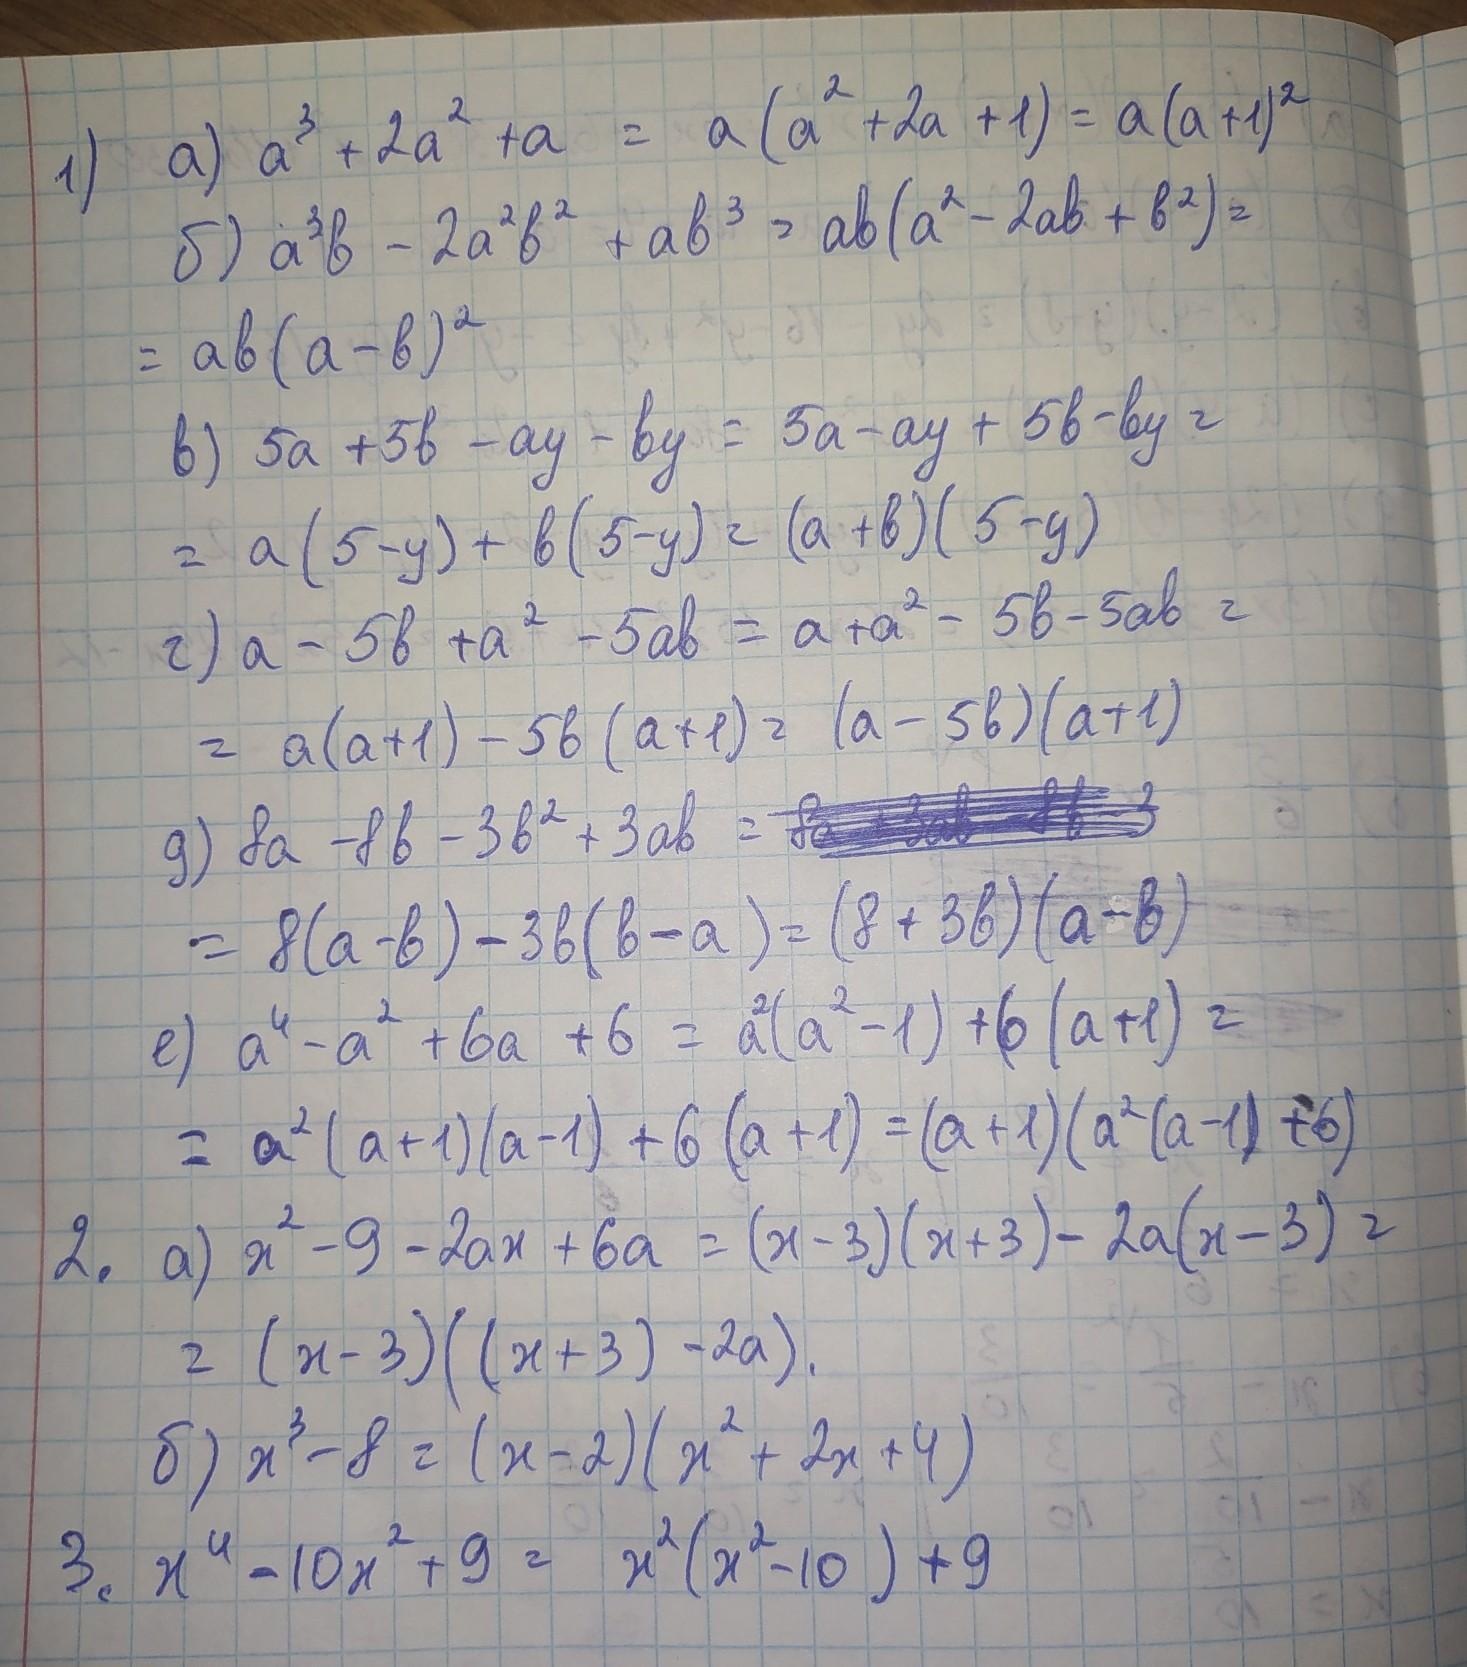 1) а) a³ + 2a² + a = a(a² + 2a + 1) = a(a+1)²
б) a³b - 2a²b² + ab³ = ab(a² - 2ab + b²) =
= ab(a - b)²
в) 5a + 5b - ay - by = 5a - ay + 5b - by =
= a(5-y) + b(5-y) = (a+b)(5-y)
г) a - 5b + a² - 5ab = a + a² - 5b - 5ab =
= a(a+1) - 5b(a+1) = (a - 5b)(a+1)
д) 8a - 8b - 3b² + 3ab =
= 8(a-b) - 3b(b-a) = (8+3b)(a-b)
е) a⁴ - a² + 6a + 6 = a²(a² - 1) + 6(a+1) =
= a²(a+1)(a-1) + 6(a+1) = (a+1)(a²(a-1) + 6)
2. а) x² - 9 - 2ax + 6a = (x-3)(x+3) - 2a(x-3) =
= (x-3)((x+3) - 2a).
б) x³ - 8 = (x-2)(x² + 2x + 4)
3. x⁴ - 10x² + 9 = x²(x² - 10) + 9